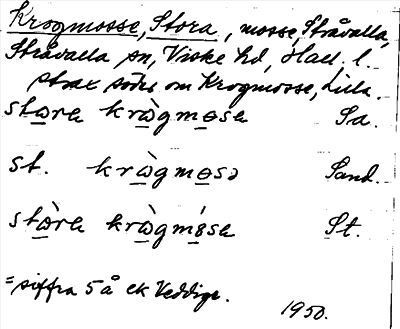 Krogmosse, Stora, mosse, Stråvalla,
Stråvalla sn, Viske hd, Hall. l.
strax söder om Krogmosse, Lilla.
stωra krὼgmɵsa Sa.
st. krὼgmɵsə Sand.
stὼra krὼgmɵ́sa St.
= siffra 5 å ek Veddige.
1950.